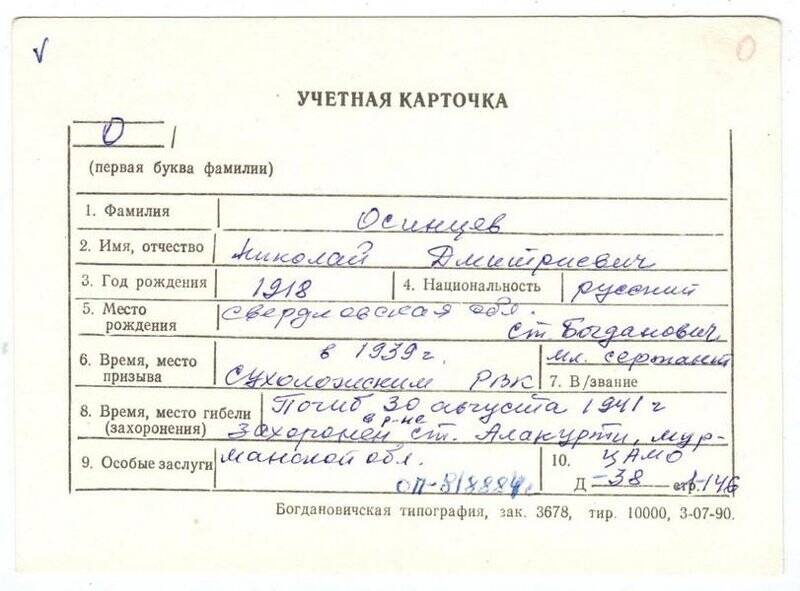 УЧЕТНАЯ КАРТОЧКА
О
(первая буква фамилии)
1. Фамилия Осинцев
2. Имя, отчество Николай Дмитриевич
3. Год рождения 1918 4. Национальность русский
5. Место рождения свердловская обл.
ст. Богданович
6. Время, место призыва в 1939 г.
Сухоложским РВК
мл. сержант
7. В/звание
8. Время, место гибели (захоронения) Погиб 30 августа 1941 г
в р-не
Захоронен ст. Алакурти, мур-
манской обл.
9. Особые заслуги
10. ЦАМО
Д -38 стр. -146
Богдановичская типография, зак. 3678, тир. 10000, 3-07-90.